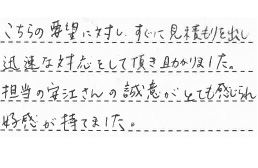 こちらの要望に対し、すぐに見積もりを出し
迅速な対応をして頂き助かりました。
担当の安江さんの誠意がとても感じられ
好感が持てました。